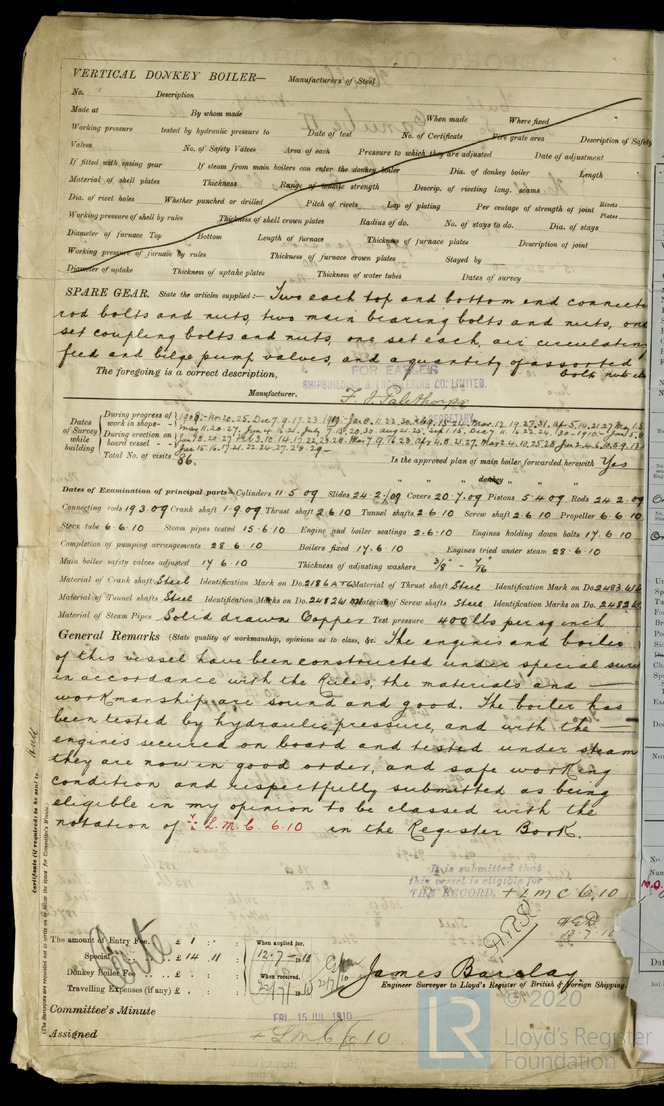 VERTICAL DONKEY BOILER— Manufacturers of Steel
No. Description
Made at By whom made When made Where fixed
Working pressure tested by hydraulic pressure to Date of test No. of Certificate Fire grate area Description of Safety
Valves No. of Safety Valves Area of each Pressure to which they are adjusted Date of adjustment
If fitted with easing gear If steam from main boilers can enter the donkey boiler Dia. of donkey boiler Length
Material of shell plates Thickness Range of tensile strength Descrip. of riveting long. seams
Dia. of rivet holes Whether punched or drilled Pitch of rivets Lap of plating Per centage of strength of joint Rivets Plates
Working pressure of shell by rules Thickness of shell crown plates Radius of do. No. of stays to do. Dia. of stays
Diameter of furnace Top Bottom Length of furnace Thickness of furnace plates Description of joint
Working pressure of furnace by rules Thickness of furnace crown plates Stayed by
Diameter of uptake Thickness of uptake plates Thickness of water tubes Dates of survey
SPARE GEAR. State the articles supplied:— Two each top and bottom end connecti
rod bolts and nuts, two main bearing bolts and nuts, one
set coupling bolts and nuts, one set each, air circulating
feed and bilge pump valves, and a quantity of assorted
bolts nuts
The foregoing is a correct description,
FOR EARLE'S
SHIPBUILDING & ENGINEERING CO. LIMITED.
Manufacturer. F. I. Palethorpe
SECRETARY
Dates of Survey while building
During progress of work in shops - -
During erection on board vessel - - -
Total No. of visits 86. Is the approved plan of main boiler forwarded herewith Yes
" " " donkey " " "
Dates of Examination of principal parts— Cylinders 11.5.09 Slides 24.2.09 Covers 20.7.09 Pistons 5.4.09 Rods 24.2.09
Connecting rods 19.3.09 Crank shaft 1.9.09 Thrust shaft 2.6.10 Tunnel shafts 2.6.10 Screw shaft 2.6.10 Propeller 6.6.10
Stern tube 6.6.10 Steam pipes tested 15.6.10 Engine and boiler seatings 2.6.10 Engines holding down bolts 17.6.10
Completion of pumping arrangements 28.6.10 Boilers fixed 17.6.10 Engines tried under steam 28.6.10
Main boiler safety valves adjusted 17.6.10 Thickness of adjusting washers 3/8" - 7/16"
Material of Crank shaft Steel Identification Mark on Do. 2186 ATG Material of Thrust shaft Steel Identification Mark on Do. 2483
Material of Tunnel shafts Steel Identification Marks on Do. 2482 Material of Screw shafts Steel Identification Marks on Do. 2482
Material of Steam Pipes Solid drawn Copper Test pressure 400 lbs per sq inch
General Remarks (State quality of workmanship, opinions as to class, &c. The engines and boiler
of this vessel have been constructed under special surve
in accordance with the Rules, the materials and
workmanship are sound and good. The boiler has
been tested by hydraulic pressure, and with the
engines secured on board and tested under steam
they are now in good order, and safe working
condition and respectfully submitted as being
eligible in my opinion to be classed with the
notation of L.M.C. 6.10 in the Register Book.
It is submitted that
this vessel is eligible for
THE RECORD. + LMC 6.10
Certificate (if required) to be sent to Hull
(The Surveyors are requested not to write on or below the space for Committee's Minute.)
The amount of Entry Fee. . £ 1 : :
Special . . £ 14 . 11 :
Donkey Boiler Fee . . £ : :
Travelling Expenses (if any) £ : :
When applied for, 12.7.1910
When received, 22/7/1910
13.7.10
James Barclay
Engineer Surveyor to Lloyd's Register of British & Foreign Shipping.
Committee's Minute FRI. 15 JUL 1910
Assigned + LMC 6.10
© 2020
LR Lloyd's Register Foundation